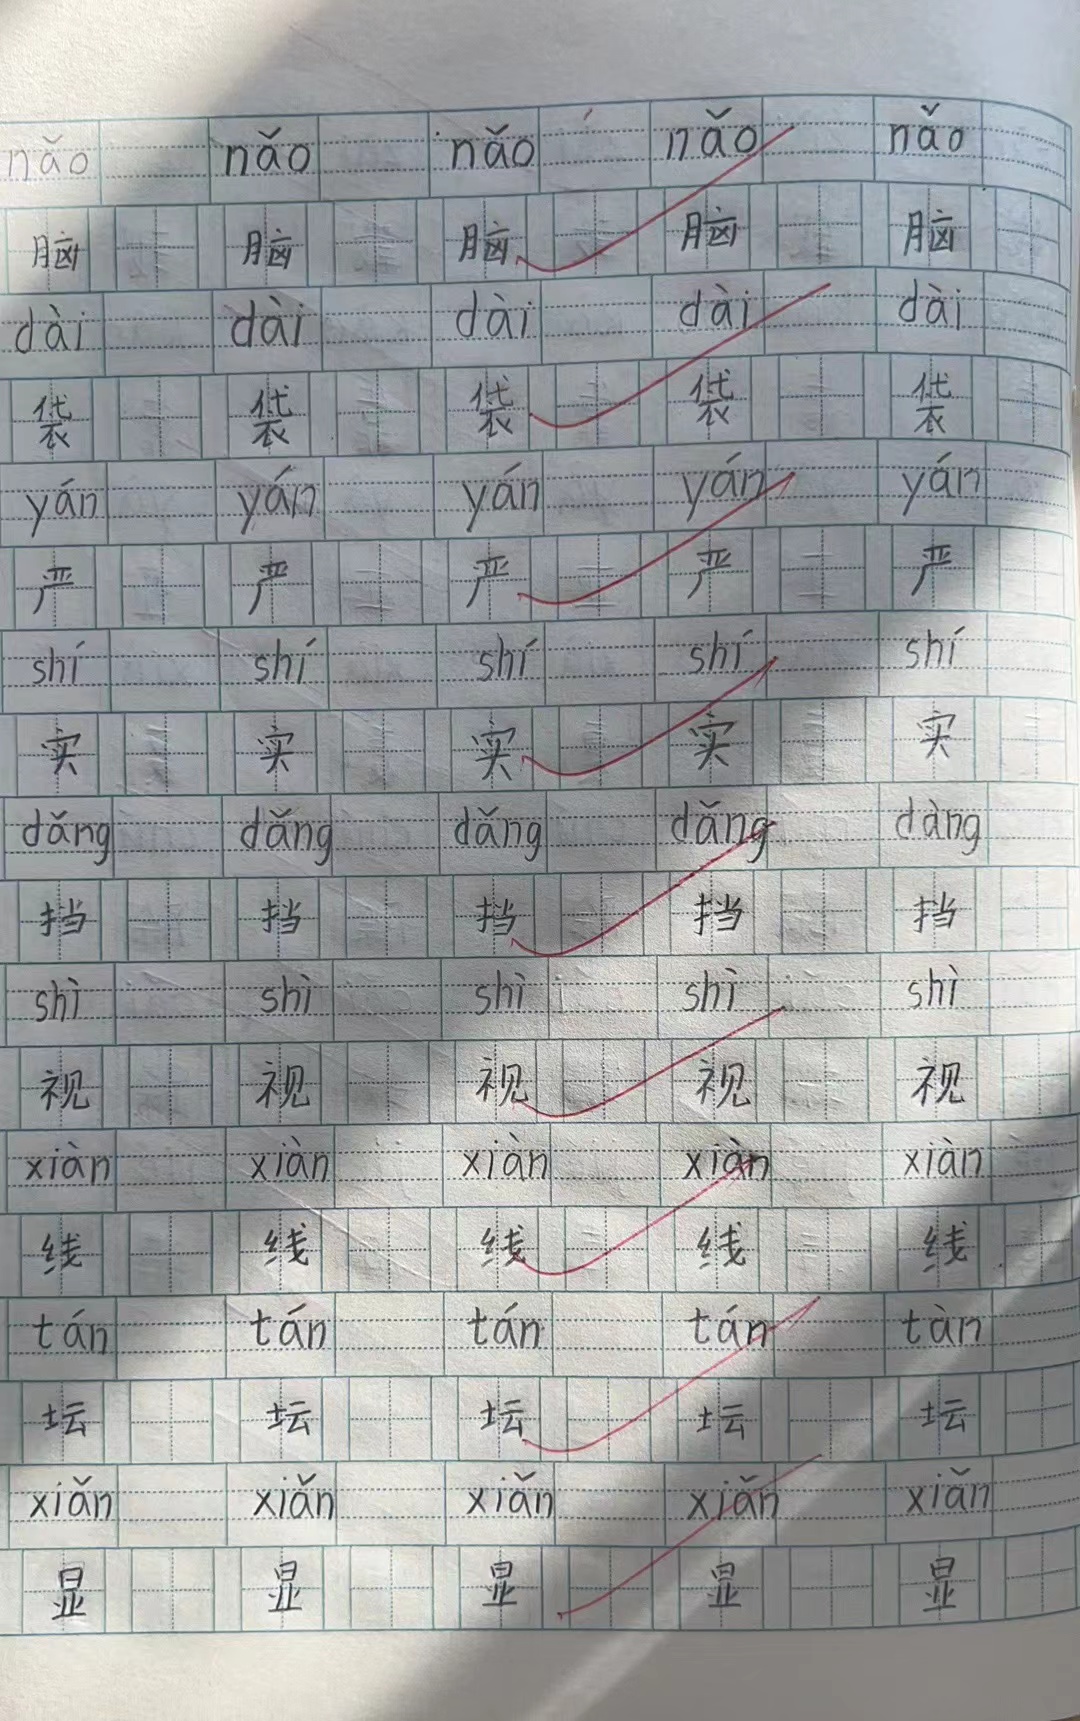 nǎo nǎo nǎo nǎo nǎo
脑 脑 脑 脑 脑
dài dài dài dài dài
袋 袋 袋 袋 袋
yán yán yán yán yán
严 严 严 严 严
shí shí shí shí shí
实 实 实 实 实
dǎng dǎng dǎng dǎng dàng
挡 挡 挡 挡 挡
shì shì shì shì shì
视 视 视 视 视
xiàn xiàn xiàn xiàn xiàn
线 线 线 线 线
tán tán tán tán tàn
坛 坛 坛 坛 坛
xiǎn xiǎn xiǎn xiǎn xiǎn
显 显 显 显 显